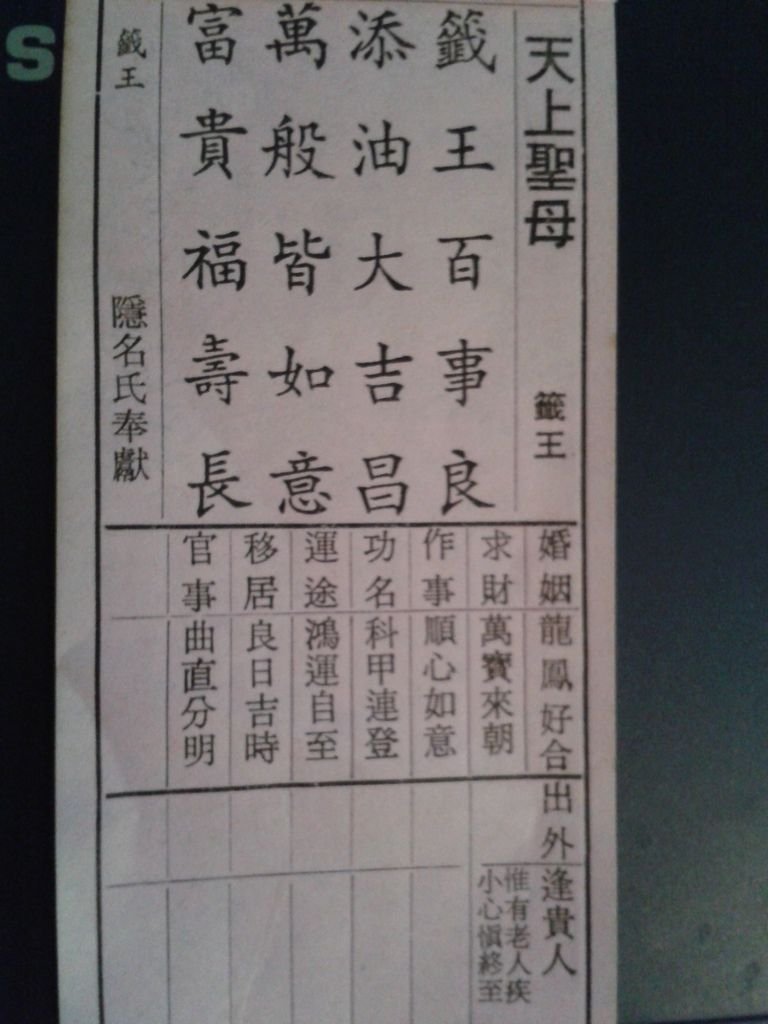 天上聖母 籤王
籤王百事良
添油大吉昌
萬般皆如意
富貴福壽長
籤王 隱名氏奉獻
婚姻 龍鳳好合
求財 萬寶來朝
作事 順心如意
功名 科甲連登
運途 鴻運自至
移居 良日吉時
官事 曲直分明
出外 逢貴人
惟有老人疾
小心慎終至
S